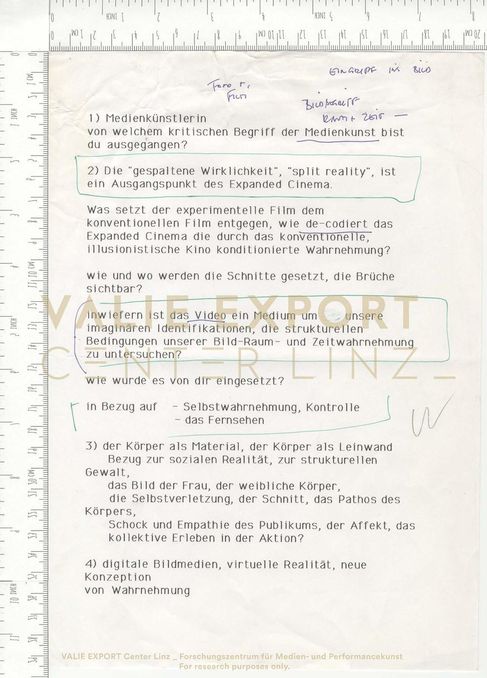 EINGRIFF INS BILD
Foto +,
Film
Bildbegriff
Raum + Zeit —
1) Medienkünstlerin
von welchem kritischen Begriff der Medienkunst bist
du ausgegangen?
2) Die "gespaltene Wirklichkeit", "split reality", ist
ein Ausgangspunkt des Expanded Cinema.
Was setzt der experimentelle Film dem
konventionellen Film entgegen, wie de-codiert das
Expanded Cinema die durch das konventionelle,
illusionistische Kino konditionierte Wahrnehmung?
wie und wo werden die Schnitte gesetzt, die Brüche
sichtbar?
Inwiefern ist das Video ein Medium um unsere
imaginären Identifikationen, die strukturellen
Bedingungen unserer Bild-Raum- und Zeitwahrnehmung
zu untersuchen?
VALIE EXPORT
CENTER LINZ_
wie wurde es von dir eingesetzt?
in Bezug auf - Selbstwahrnehmung, Kontrolle
- das Fernsehen
3) der Körper als Material, der Körper als Leinwand
Bezug zur sozialen Realität, zur strukturellen
Gewalt,
das Bild der Frau, der weibliche Körper,
die Selbstverletzung, der Schnitt, das Pathos des
Körpers,
Schock und Empathie des Publikums, der Affekt, das
kollektive Erleben in der Aktion?
4) digitale Bildmedien, virtuelle Realität, neue
Konzeption
von Wahrnehmung
VALIE EXPORT Center Linz _ Forschungszentrum für Medien- und Performancekunst
For research purposes only.